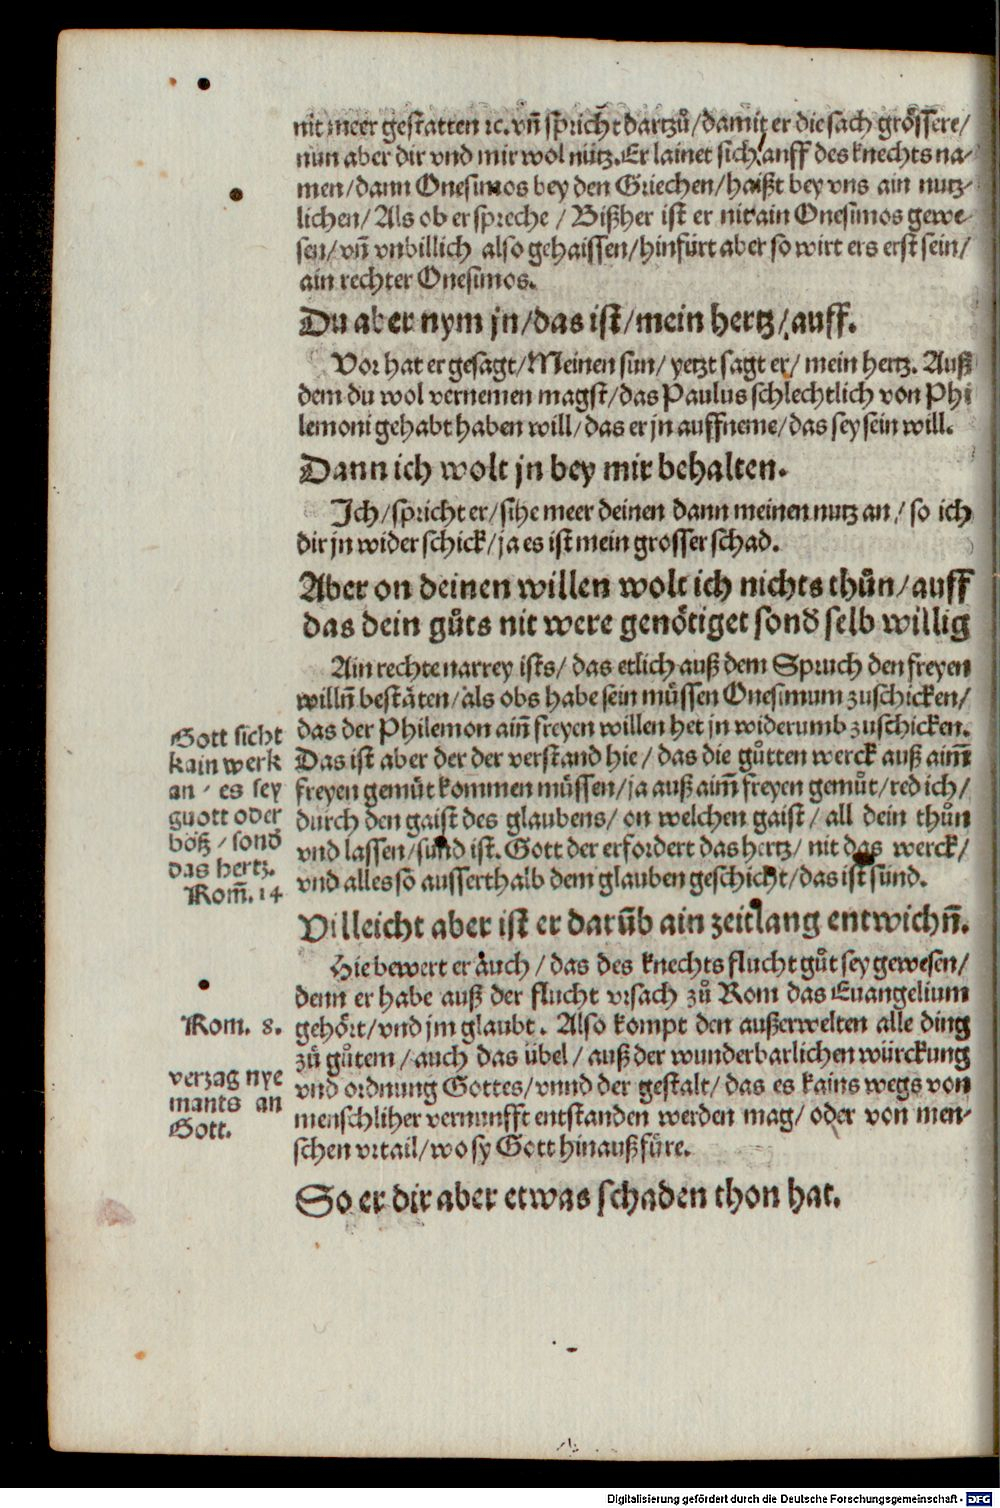 nit meer gestatten ⁊c. vñ spricht dartzuͦ/damit er die sach groͤssere/
nun aber dir vnd mir wol nütz. Er lainet sich auff des knechts na-
men/dann Onesimos bey den Griechen/haißt bey vns ain nutz-
lichen/ Als ob er spreche / Bißher ist er nit ain Onesimos gewe-
sen/ vñ vnbillich also gehaissen/hinfürt aber so wirt ers erst sein/
ain rechter Onesimos.
Du aber nym jn/das ist/mein hertz/auff.
Vor hat er gesagt/Meinen sun/ yetzt sagt er/ mein hertz. Auß
dem du wol vernemen magst/das Paulus schlechtlich von Phi
lemoni gehabt haben will/das er jn auffneme/das sey sein will.
Dann ich wolt jn bey mir behalten.
Ich/spricht er/sihe meer deinen dann meinen nutz an/ so ich
dir jn wider schick/ja es ist mein grosser schad.
Aber on deinen willen wolt ich nichts thuͦn/auff
das dein guͦts nit were genoͤtiget sond̄ selb willig
Ain rechte narrey ists/ das etlich auß dem Spruch den freyen
willn̄ bestaͤten/als obs habe sein muͤssen Onesimum zuschicken/
das der Philemon ain̄ freyen willen het jn widerumb zuschicken.
Das ist aber der der verstand hie/ das die guͦtten werck auß aim̄
freyen gemuͤt kommen muͤssen/ja auß aim̄ freyen gemuͤt/red ich/
durch den gaist des glaubens/ on welchen gaist/ all dein thuͦn
vnd lassen/sünd ist. Gott der erfordert das hertz/ nit das werck/
vnd alles so ausserthalb dem glauben geschicht/das ist sünd.
Gott sicht
kain werk
an / es sey
guott oder
boͤß / sond̄
das hertz.
Rom̄. 14
Villeicht aber ist er darūb ain zeitlang entwichn̄.
Hie bewert er auch / das des knechts flucht guͦt sey gewesen/
denn er habe auß der flucht vrsach zuͦ Rom das Euangelium
gehoͤrt/vnd jm glaubt. Also kompt den außerwelten alle ding
zuͦ guͦtem/auch das übel/ auß der wunderbarlichen würckung
vnd ordnung Gottes/vnnd der gestalt/das es kains wegs von
menschliher vernunfft entstanden werden mag/ oder von men-
schen vrtail/wo sy Gott hinauß fuͤre.
Rom. 8.
verzag nye
mants an
Gott.
So er dir aber etwas schaden thon hat.
Digitalisierung gefördert durch die Deutsche Forschungsgemeinschaft - DFG